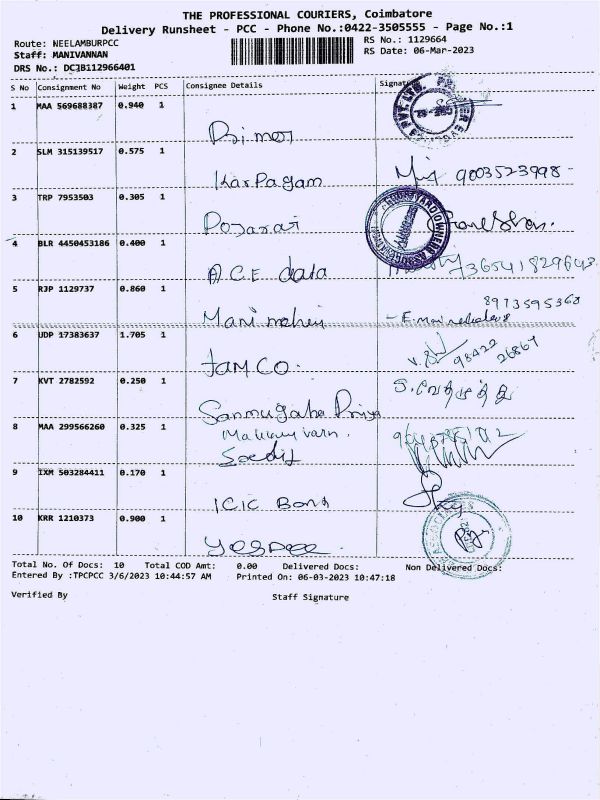 THE PROFESSIONAL COURIERS, Coimbatore
Delivery Runsheet - PCC - Phone No.:0422-3505555 - Page No.:1
Route: NEELAMBURPCC
RS No.: 1129664
Staff: MANIVANNAN
RS Date: 06-Mar-2023
DRS No.: DC1B112966401
S No Consignment No Weight PCS Consignee Details Signature
1 MAA 569688387 0.940 1
2 SLM 315139517 0.575 1
Karpagam 9003523998
3 TRP 7953503 0.305 1
4 BLR 4450453186 0.400 1
ACE data
5 RJP 1129737 0.860 1
8973595368
6 UDP 17383637 1.705 1
JAMCO. 98422 26867
7 KVT 2782592 0.250 1
Sanmugaha Priya
8 MAA 299566260 0.325 1
9 IXM 503284411 0.170 1
ICIC Bank
10 KRR 1210373 0.900 1
Total No. Of Docs: 10 Total COD Amt: 0.00 Delivered Docs: Non Delivered Docs:
Entered By :TPCPCC 3/6/2023 10:44:57 AM Printed On: 06-03-2023 10:47:18
Verified By Staff Signature